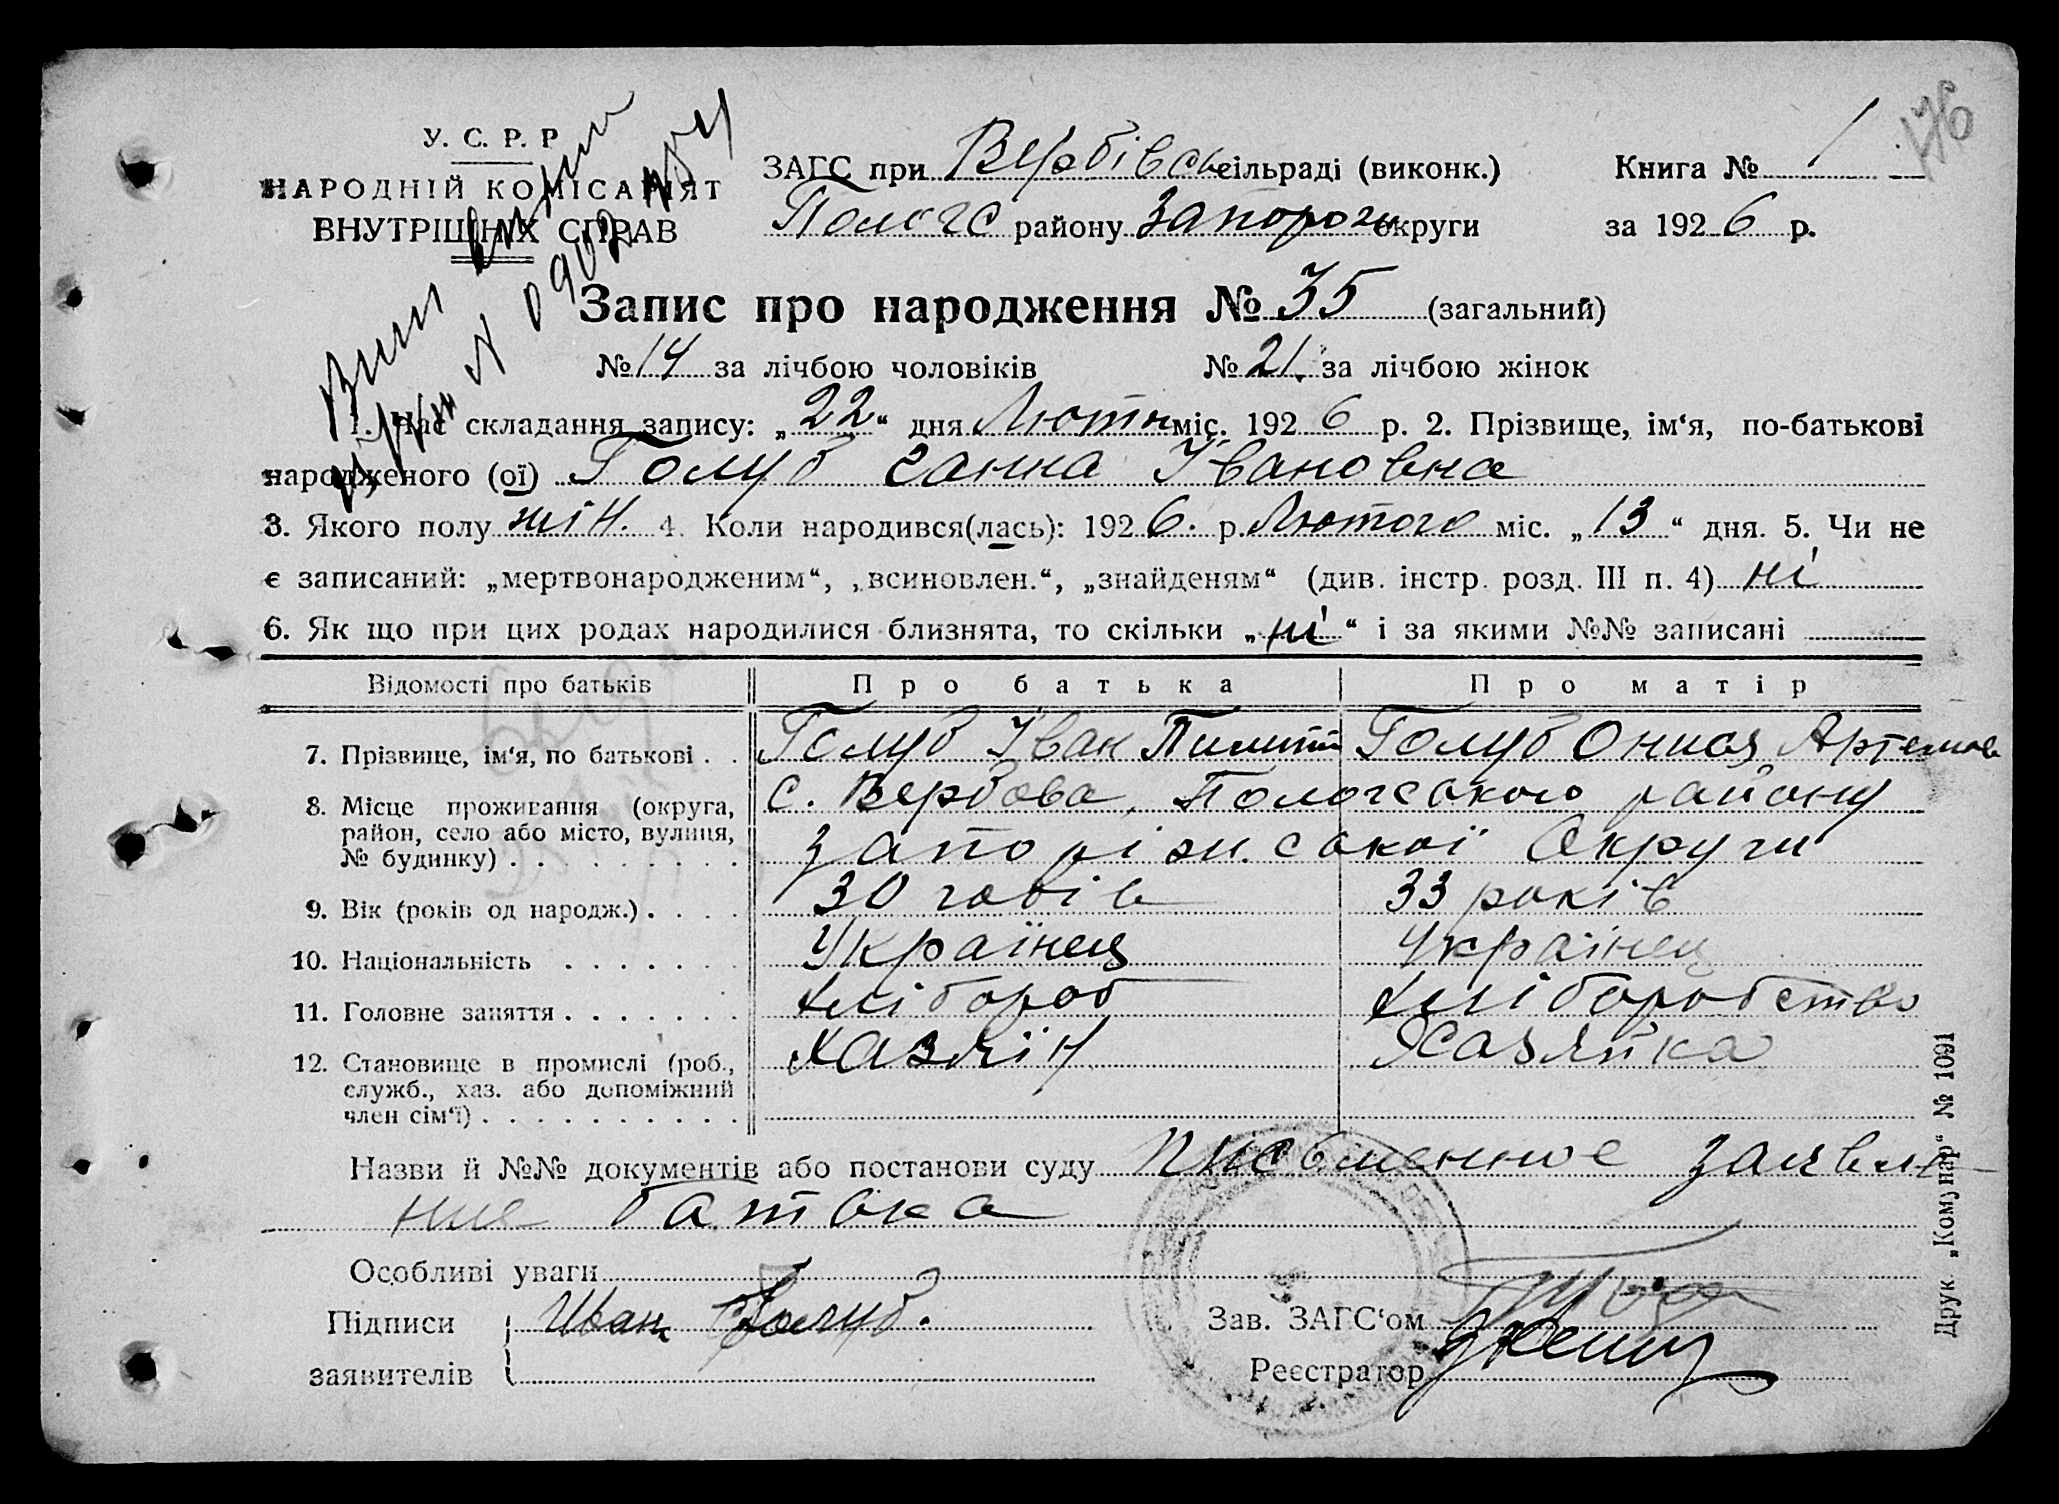 176
У. С. Р. Р
НАРОДНІЙ КОМІСАРІЯТ
ВНУТРІШНІХ СПРАВ
ЗАГС при Вербівськ сільраді (виконк.) Книга № 1
Пологс району Запорож округи за 1926 р.
Запис про народження № 35 (загальний)
№ 14 за лічбою чоловіків № 21. за лічбою жінок
1. Час складання запису: „22“ дня Лютн міс. 1926 р. 2. Прізвище, ім‘я, по-батькові
народженого (ої) Голуб Ганна Івановна
3. Якого полу жін. 4. Коли народився(лась): 1926. р. Лютого міс. „13“ дня. 5. Чи не
є записаний: „мертвонародженим“, „всиновлен.“, „знайденям“ (див. інстр. розд. III п. 4) ні
6. Як що при цих родах народилися близнята, то скільки „ні“ і за якими №№ записані
Відомості про батьків Про батька Про матір
7. Прізвище, ім‘я, по батькові . . Голуб Іван Пилип Голуб Онися Артемов
8. Місце проживання (округа, с. Вербова, Пологсокого району
район, село або місто, вулиця, Запоріж. сокої Округи
№ будинку) . . . . . . . . .
9. Вік (років од народж.) . . . . 30 годів 33 років
10. Національність . . . . . . . Українец Українец
11. Головне заняття . . . . . . . хлібороб хліборобство
12. Становище в промислі (роб., Хазяїн Хазяйка
служб., хаз. або допоміжний
член сім‘ї) . . . . . . . . . .
Назви й №№ документів або постанови суду письменное заявле-
ние батька
Особливі уваги
Підписи Иван Голуб. Зав. ЗАГС‘ом
заявителів Реєстратор
Друк „Комунар“ № 1091